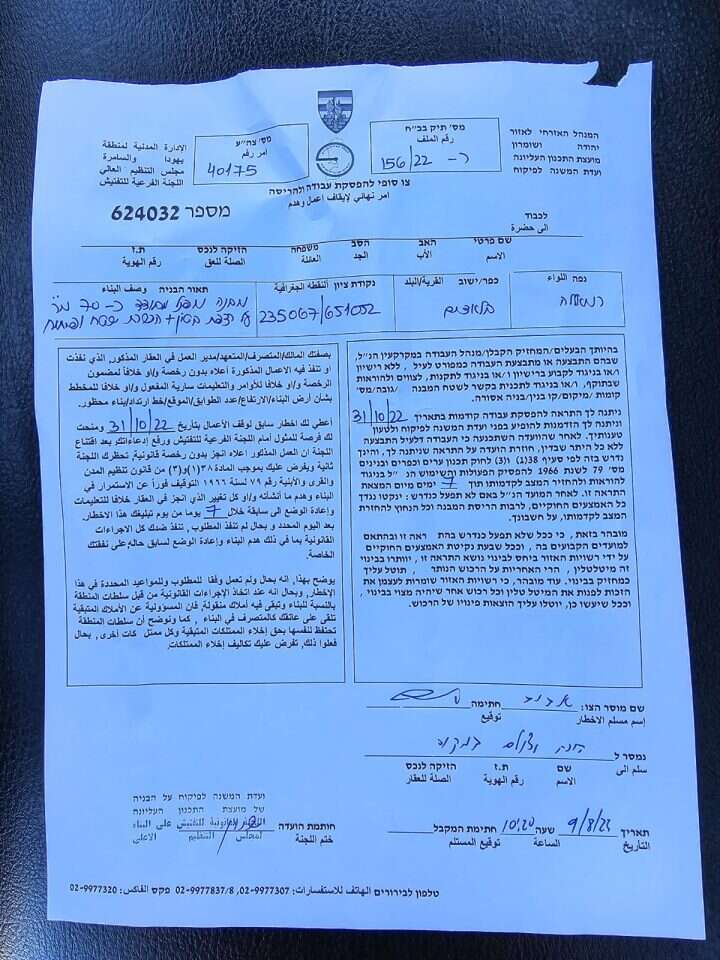 המנהל האזרחי לאזור
יהודה ושומרון
מועצת התכנון העליונה
ועדת המשנה לפיקוח
מס' תיק בכ"ח
رقم الملف
כ- 156/22
מס' צה"ע
امر رقم
40175
الإدارة المدنية لمنطقة
يهودا والسامرة
مجلس التنظيم العالي
اللجنة الفرعية للتفتيش
צו סופי להפסקת עבודה ולהריסה
امر نهائي لإيقاف اعمال وهدم
מספר 624032
לכבוד
الى حضرة
שם פרטי האב הסב משפחה הזיקה לנכס ת.ז
الاسم الأب الجد العائلة الصلة للعق رقم الهوية
נפה اللواء
רמאללה
כפר/ישוב القرية/البلد
נקודת ציון النقطة الجغرافية
235067/651052
תאור הבניה وصف البناء
בהיותך הבעלים/המחזיק הקבלן/מנהל העבודה במקרקעין הנ"ל,
שבהם התבצעה או מתבצעת העבודה כמפורט לעיל, ללא רישיון
ו/או בניגוד לקבוע ברישיון ו/או בניגוד לתקנות, לצווים ולהוראות
שבתוקף, ו/או בניגוד לתכנית בקשר לשטח המבנה /גובה/מס'
קומות /מיקום/קו בנין/בניה אסורה.
ניתנה לך התראה להפסקת עבודה קודמות בתאריך 31/10/22
וניתנה לך הזדמנות להופיע בפני ועדת המשנה לפיקוח ולטעון
טענותיך. לאחר שהוועדה השתכנעה כי העבודה דלעיל התבצעה
ללא כל היתר שבדין, חוזרת הועדה על התראה שניתנה לך, והינך
נדרש בזה לפי סעיף 38(ג) ו(3) לחוק תכנון ערים וכפרים ובנינים
מס' 79 לשנת 1966 להפסיק הפעולות והשימוש הנ"ל בניגוד
להוראות ולהחזיר המצב לקדמותו תוך 7 ימים מיום המצאת
התראה זו. לאחר המועד הנ"ל באם לא תפעל כנדרש : ינקטו נגדך
כל האמצעים החוקיים, לרבות הריסת המבנה וכל הנחוץ להחזרת
המצב לקדמותו, על חשבונך.
מובהר בזאת, כי ככל שלא תפעל כנדרש בהתראה זו ובהתאם
למועדים הקבועים בה, וככל שבעת נקיטת האמצעים החוקיים
על ידי רשויות האזור ביחס לבינוי נושא התראה זו, יוותרו בבינוי
זה מיטלטלין, הרי האחריות על הרכוש הנותר, תוטל עליך
כמחזיק בבינוי. עוד מובהר, כי רשויות האזור שומרות לעצמן את
הזכות לפנות את המיטלטלין וכל רכוש אחר שיהיה מצוי בבינוי,
וככל שיעשו כן, יוטלו עליך הוצאות פינויו של הרכוש.
بصفتك المالك/المتصرف/المتعهد/مدير العمل في العقار المذكور, الذي نفذت
او تنفذ فيه الاعمال المذكورة أعلاه بدون رخصة و/او خلافا لمضمون
الرخصة و/او خلافا للأوامر والتعليمات سارية المفعول و/او خلافا للمخطط
بشأن أرض البناء/الارتفاع/عدد الطوابق/الموقع/خط ارتداد/بناء محظور.
أعطي لك اخطار سابق لوقف الأعمال بتأريخ 31/10/22 ومنحت
لك فرصة للمثول أمام اللجنة الفرعية للتفتيش ورفع إدعاءاتك, بعد اقتناع
اللجنة ان العمل المذكور اعلاه انجز بدون رخصة قانونية, تحظرك اللجنة
ثانية ويفرض عليك بموجب المادة ٣٨(١)و(٣) من قانون تنظيم المدن
والقرى والأبنية رقم ٧٩ لسنة ١٩٦٦ التوقيف فوراً عن الاستمرار في
البناء وهدم ما أنشأته و/او كل تغيير الذي انجز في العقار خلافا للتعليمات
وإعادة الوضع الى سابقة خلال 7 يوما من يوم تبليغك هذا الاخطار.
بعد اليوم المحدد و بحال لم تنفذ المطلوب, تنفذ ضدك كل الاجراءات
القانونية بما في ذلك هدم البناء وإعادة الوضع لسابق حاله, على نفقتك
الخاصة.
يوضح بهذا, انه بحال ولم تعمل وفقا للمطلوب وللمواعيد المحددة في هذا
الإخطار, وبحال انه عند اتخاذ الإجراءات القانونية من قبل سلطات المنطقة
بالنسبة للبناء وتبقى فيه أملاك منقولة, فان المسؤولية عن الأملاك المتبقية
تلقى على عاتقك كالمتصرف في البناء, كما ونوضح أن سلطات المنطقة
تحتفظ لنفسها بحق إخلاء الممتلكات المتبقية وكل ممتلكات أخرى, بحال
فعلوا ذلك, تفرض عليك تكاليف إخلاء الممتلكات.
שם מוסר הצו: חתימה
إسم مسلم الاخطار توقيع
נמסר ל
שם ת.ז הזיקה לנכס
سلم الى الاسم رقم الهوية الصلة للعقار
תאריך 9/8/23 שעה 10:20 חתימת המקבל
التأريخ الساعة توقيع المستلم
חותמת הועדה
ختم اللجنة
ועדת המשנה לפיקוח על הבניה
של מועצת התכנון העליונה
اللجنة الثانوية للتفتيش على البناء
لمجلس التنظيم الاعلى
טלפון לבירורים الهاتف للاستفسارات: 02-9977307, 02-9977837/8 פקס الفاكس: 02-9977320